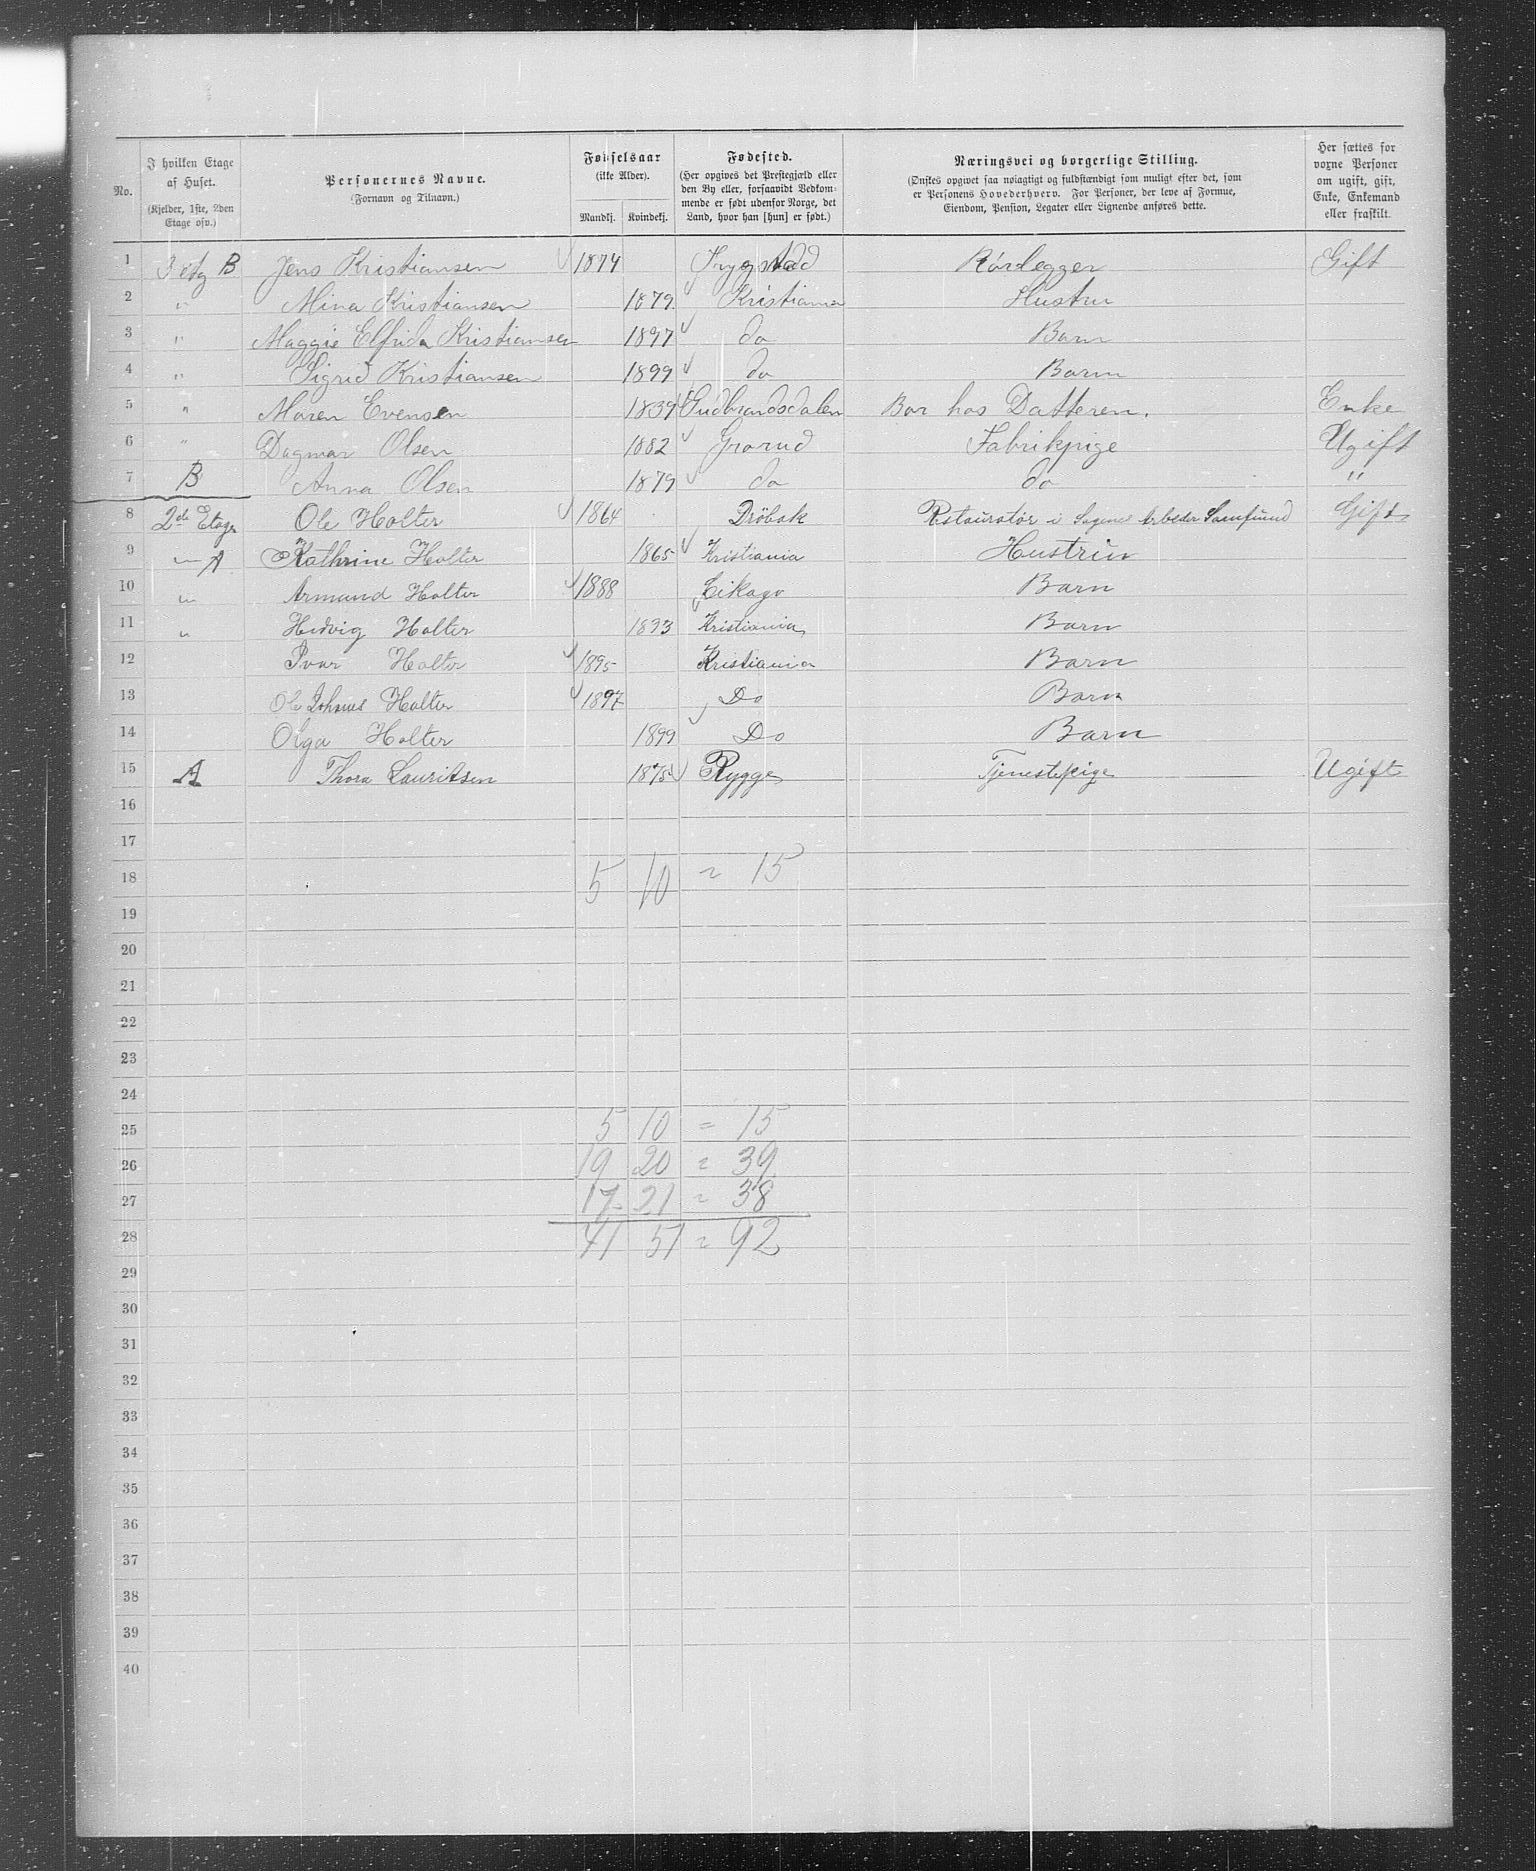 No. | I hvilken Etage af Huset. (Kjelder, 1ste, 2den Etage osv.) | Personernes Navne. (Fornavn og Tilnavn.) | Fødselsaar (ikke Alder). Mandkj. Kvindekj. | Fødested. (Her opgives det Prestegjæld eller den By eller, forsaavidt Vedkommende er født udenfor Norge, det Land, hvor han [hun] er født.) | Næringsvei og borgerlige Stilling. (Ønskes opgivet saa nøiagtigt og fuldstændigt som muligt efter det, som er Personens Hovederhverv. For Personer, der leve af Formue, Eiendom, Pension, Legater eller Lignende anføres dette. | Her sættes for voxne Personer om ugift, gift, Enke, Enkemand eller fraskilt.
1 3 etg B Jens Kristiansen 1874 Trygstad Rörlegger Gift
2 " Mina Kristiansen 1879. Kristiania Hustru
3 " Maggie Elfrida Kristiansen 1897 do Barn
4 " Sigrid Kristiansen 1899 do Barn
5 " Maren Evensen 1839 Gudbrandsdalen Bor hos Datteren. Enke
6 " Dagmar Olsen 1882 Grorud Fabrikpige Ugift
7 B Anna Olsen 1879 do do "
8 2de Etage Ole Holter 1864 Dröbak Restauratør i Sagene Arbeder Samfund Gift
9 " A Kathrine Holter 1865 Kristiania Hustru
10 " Armund Holter 1888 Cikago Barn
11 " Hedvig Holter 1893 Kristiania Barn
12 Ivar Holter 1895 Kristiania Barn
13 Ole Johanes Holter 1897 Do Barn
14 Olga Holter 1899 Do Barn
15 A Thora Lauritsen 1875 Rygge Tjenestepige Ugift
16
17
18 5 10 = 15
19
20
21
22
23
24
25 5 10 = 15
26 19 20 = 39
27 17 21 = 38
28 41 51 = 92
29
30
31
32
33
34
35
36
37
38
39
40